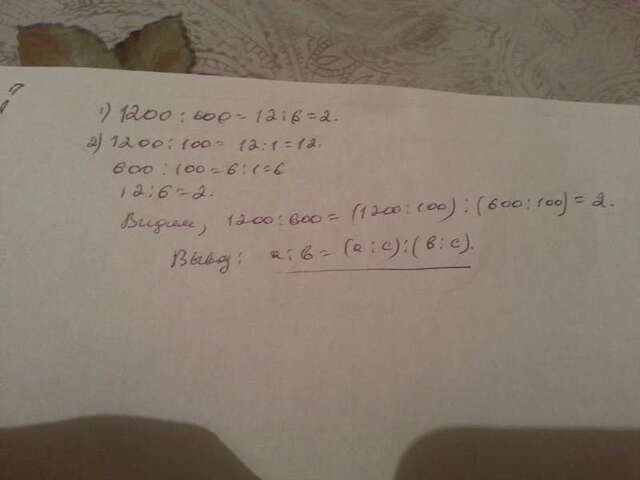 1) 1200 : 600 = 12 : 6 = 2.
2) 1200 : 100 = 12 : 1 = 12.
600 : 100 = 6 : 1 = 6
12 : 6 = 2.
Видим, 1200 : 600 = (1200 : 100) : (600 : 100) = 2.
Вывод: а : в = (а : с) : (в : с).